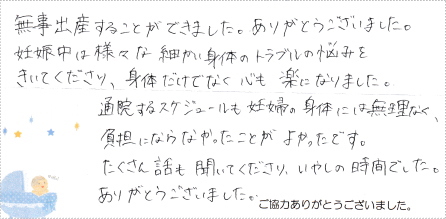 無事出産することができました。ありがとうございました。
妊娠中は様々な細かい身体のトラブルの悩みを
きいてくださり、身体だけでなく心も楽になりました。
通院するスケジュールも妊婦の身体には無理なく、
負担にならなかったことがよかったです。
たくさん話も聞いてくださり、いやしの時間でした。
ありがとうございました。
ご協力ありがとうございました。